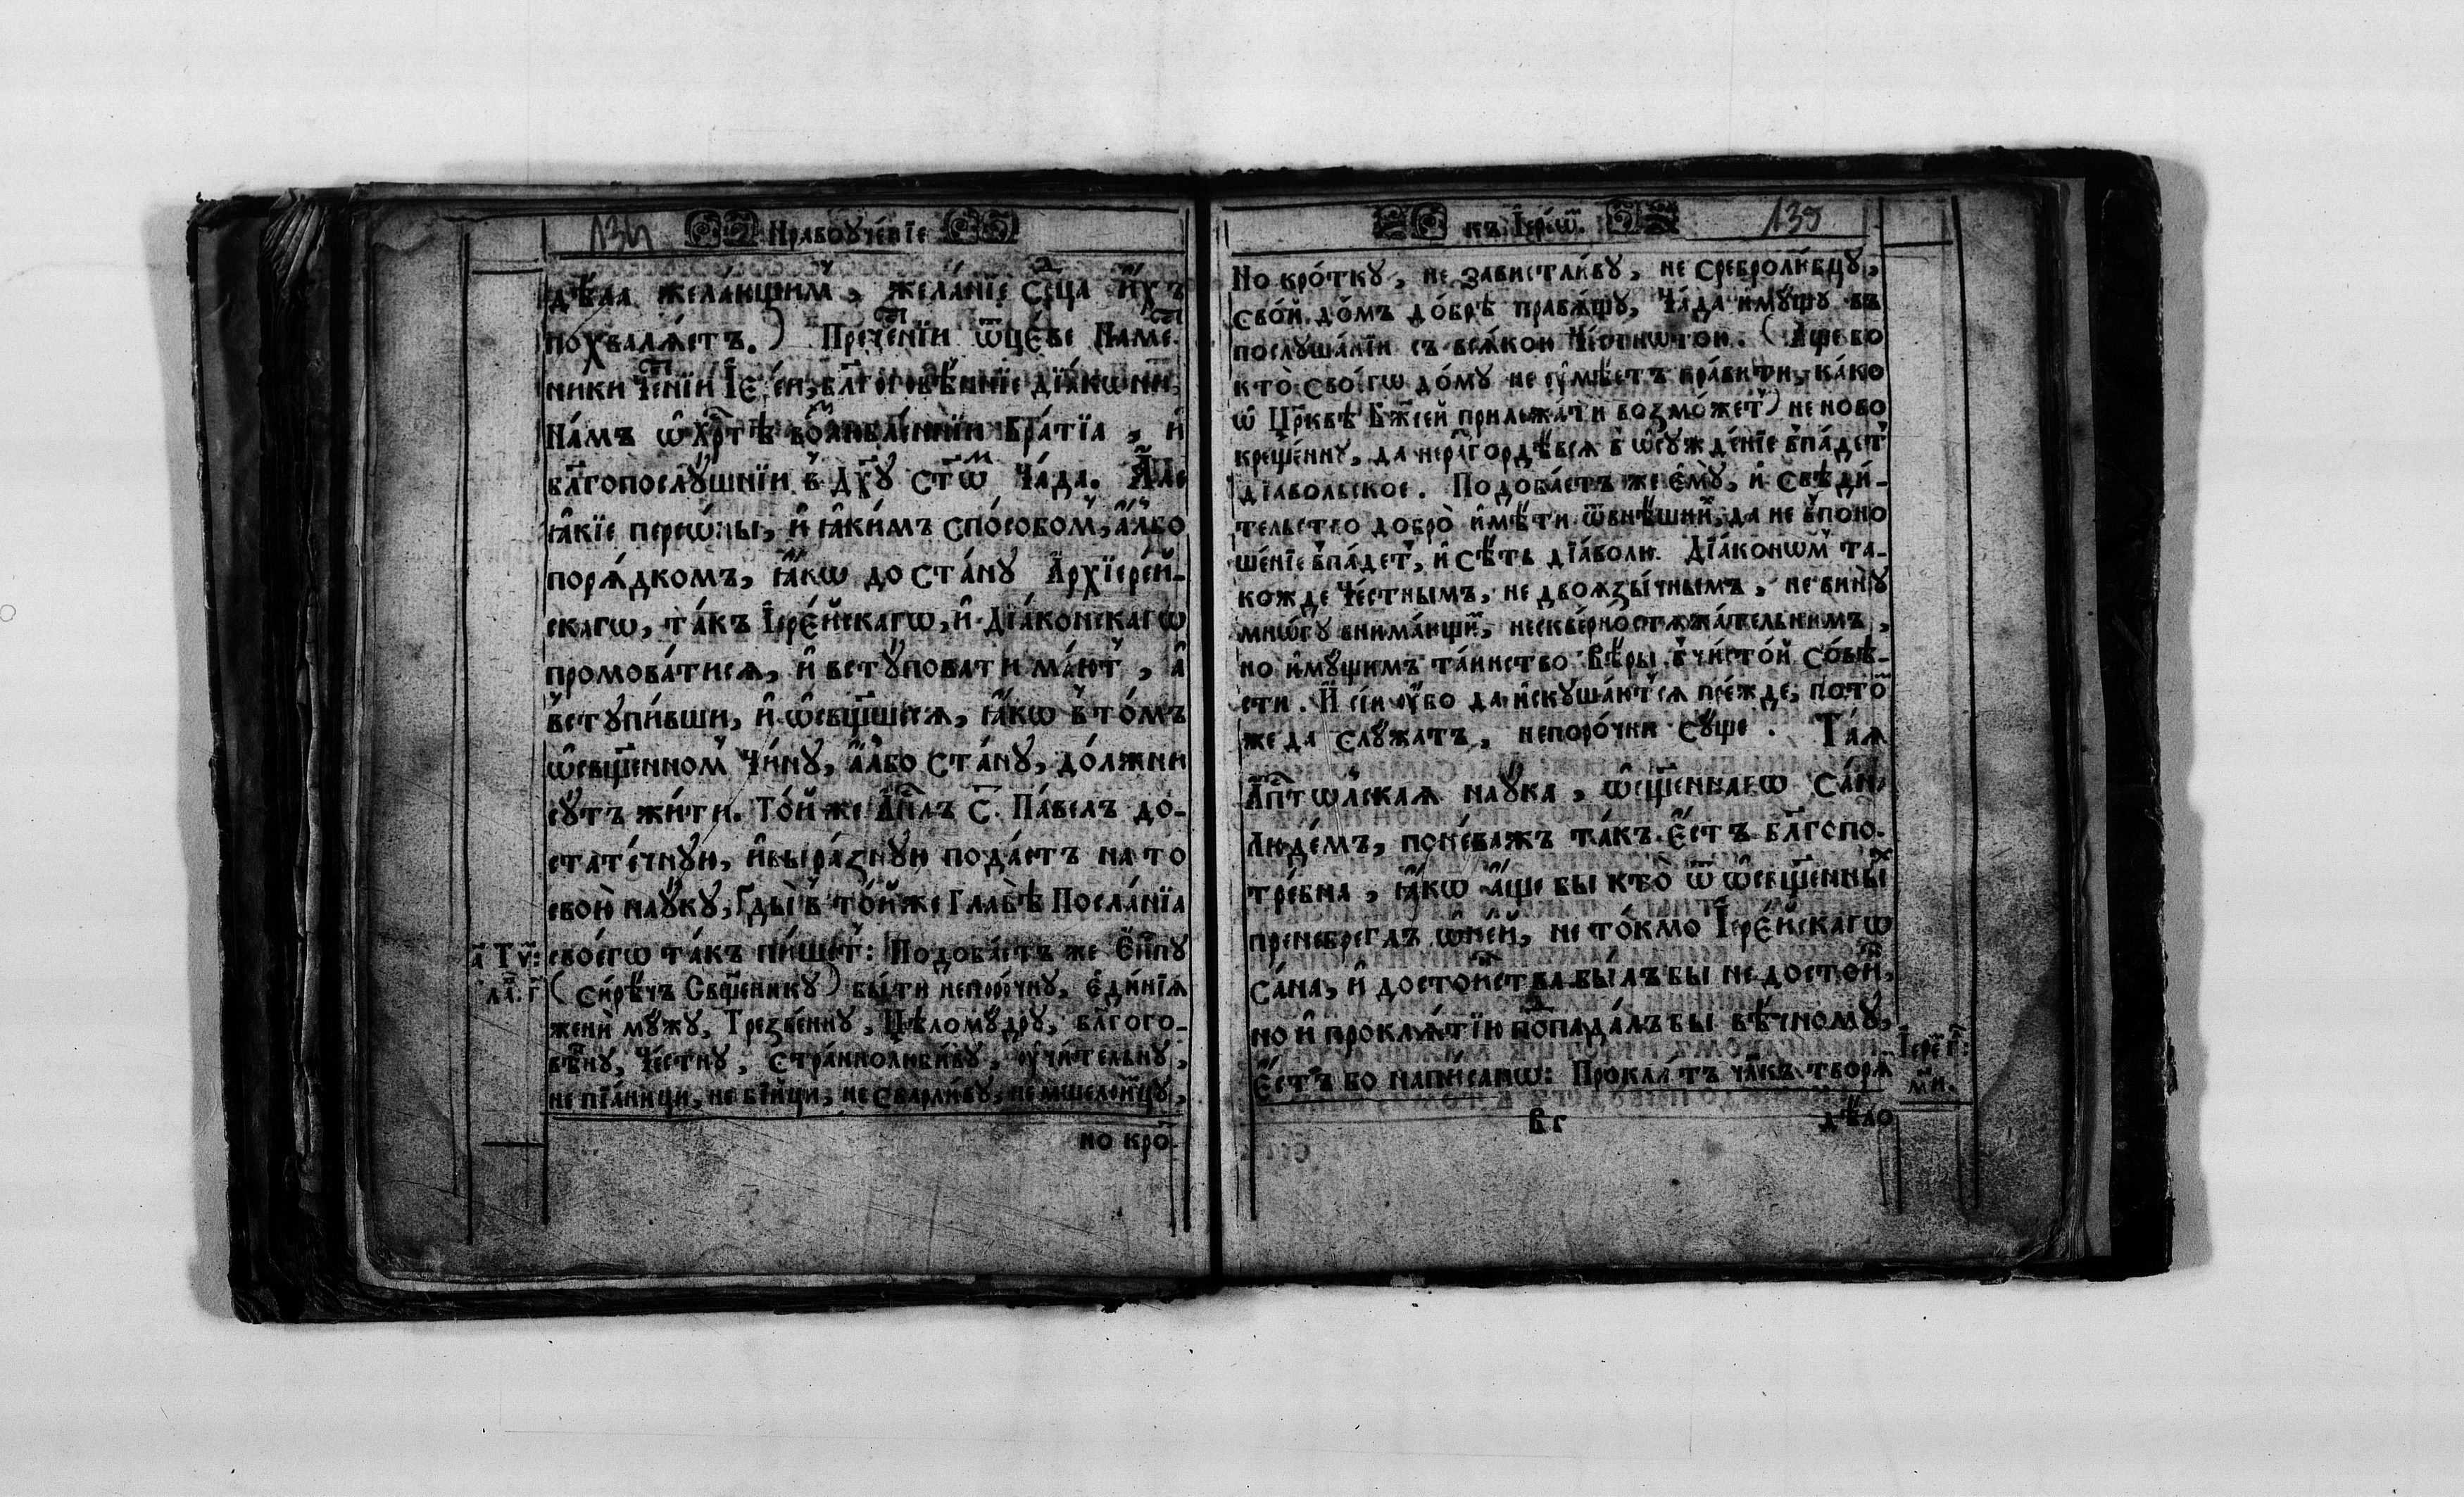 134 Нравоуче́нїе
дѣ́ла жела́ющимъ, жела́нїе се́рдца и́хъ
похвалѧ́етъ.) Пречⷭ҇нїи ѿце́ве Намѣⷭ҇-
ники Чⷭ҇нїи І҆ере́и, бл҃гоговѣ́ннїе дїа́кѡни,
На́мъ ѡ҆ Хрⷭ҇тѣ̀ возлю́бленнїи Бра́тїа, и҆
бл҃гопослꙋ́шнїи в̾ Дх҃ꙋ ст҃ѡⷨ Ча́да. А҆ле
ꙗ҆кі́е персѡ́ны, и҆ ꙗ҆ки́мъ спо́собом̾, а҆́лбо
порѧ́дкомъ, ꙗ҆́кѡ до ста́нꙋ А҆рхїере́й-
скагѡ, та́къ І҆ере́йскагѡ, и҆ Дїа́конскагѡ
промова́тисѧ, и҆ встꙋ́повати ма́ют̾, а҆
в̾стꙋпи́вши, и҆ ѡ҆свщ҃шисѧ, ꙗ҆́кѡ в̾ то́мъ
ѡ҆свщ҃енном̾ Чи́нꙋ, а҆́лбо ста́нꙋ, до́лжни
сꙋ́тъ жи́ти. То́й же А҆пⷭ҇лъ С. Па́велъ до-
стате́чнꙋю, и҆ выра́знꙋю пода́етъ на то
свою̀ наꙋ́кꙋ, Гды̀ в̾ то́йже Главѣ̀ Посла́нїа
а҃ Тѵ҃: своегѡ̀ та́къ пи́шет̾: Подоба́етъ же Е҆пⷭ҇пꙋ
гла҃: г҃ (Си́рѣчъ Сщ҃е́нникꙋ) бы́ти непоро́чнꙋ, є҆ди́нїѧ
жени̇̀ мꙋ́жꙋ, Трезве́ннꙋ, Цѣломꙋ́дрꙋ, бл҃гого-
вѣ́нꙋ, Че́стнꙋ, страннолюби́вꙋ, ᲂу҆чи́тельнꙋ,
не пїа́ници, не бі́йци, не сварли́вꙋ, не мшелои́мцꙋ,
но кро-
къ І҆ере́ѡⷨ. 135
Но кро́ткꙋ, не завистли́вꙋ, не сребролю́бцꙋ,
сво́й до́мъ до́брѣ правѧ́щꙋ, Ча́да и҆мꙋ́щꙋ въ
послꙋша́нїи съ всѧ́кою Че́стнѡтою. (А҆ще бо
кто̀ своегѡ̀ до́мꙋ не ᲂу҆мѣ́етъ пра́вити, ка́ко
ѡ҆ Цр҃квѣ Бж҃їей прилѣжа́ти возмо́жет̾) не ново
креще́ннꙋ, да не разгордѣ́всѧ в̾ ѡ҆сꙋжде́нїе в̾паде́т̾
дїа́вольское. Подоба́етъ же є҆мꙋ̀, и҆ свѣди́-
тельство добро̀ и҆мѣ́ти ѿ внѣ́шниⷯ, да не в̾поно
ше́нїе в̾паде́т̾, и҆ сѣ́ть дїа́волю. Дїа́конѡм̾ та-
кожде Че́стнымъ, не двоѧзы́чнымъ, не винꙋ̀
мнѡ́гꙋ внима́ющиⷨ, не скверностѧжа́тельнимъ,
но и҆мꙋ́щимъ та́инство Вѣ́ры в̾ чи́стой со́вѣ-
сти. И҆ сі́и ᲂу҆́бо да и҆скꙋша́ютсѧ пре́жде, пото́ⷨ
же да слꙋ́жатъ, непоро́чни сꙋ́ще. Та́ѧ
А҆пⷭ҇тѡлскаѧ наꙋ́ка, ѡ҆сщ҃еннагѡ са́нꙋ
Люде́мъ, поне́важъ та́къ є҆́стъ бл҃гопо-
тре́бна, ꙗ҆́кѡ а҆́ще бы кто̀ ѿ ѡ҆свщ҃енныⷯ
пренебрегл̾ъ ѡ҆ не́й, не то́кмо І҆ере́йскагѡ
са́на, и҆ досто́йства бы́лъ бы не досто́йⷩ,
но и҆ проклѧ́тїю попада́лъ бы вѣ́чномꙋ,
Є҆́стъ бо напи́санѡ: Проклѧ́тъ чл҃къ творѧ́
І҆ере҃: г҃л:
м҃и.
вг дѣ́ло